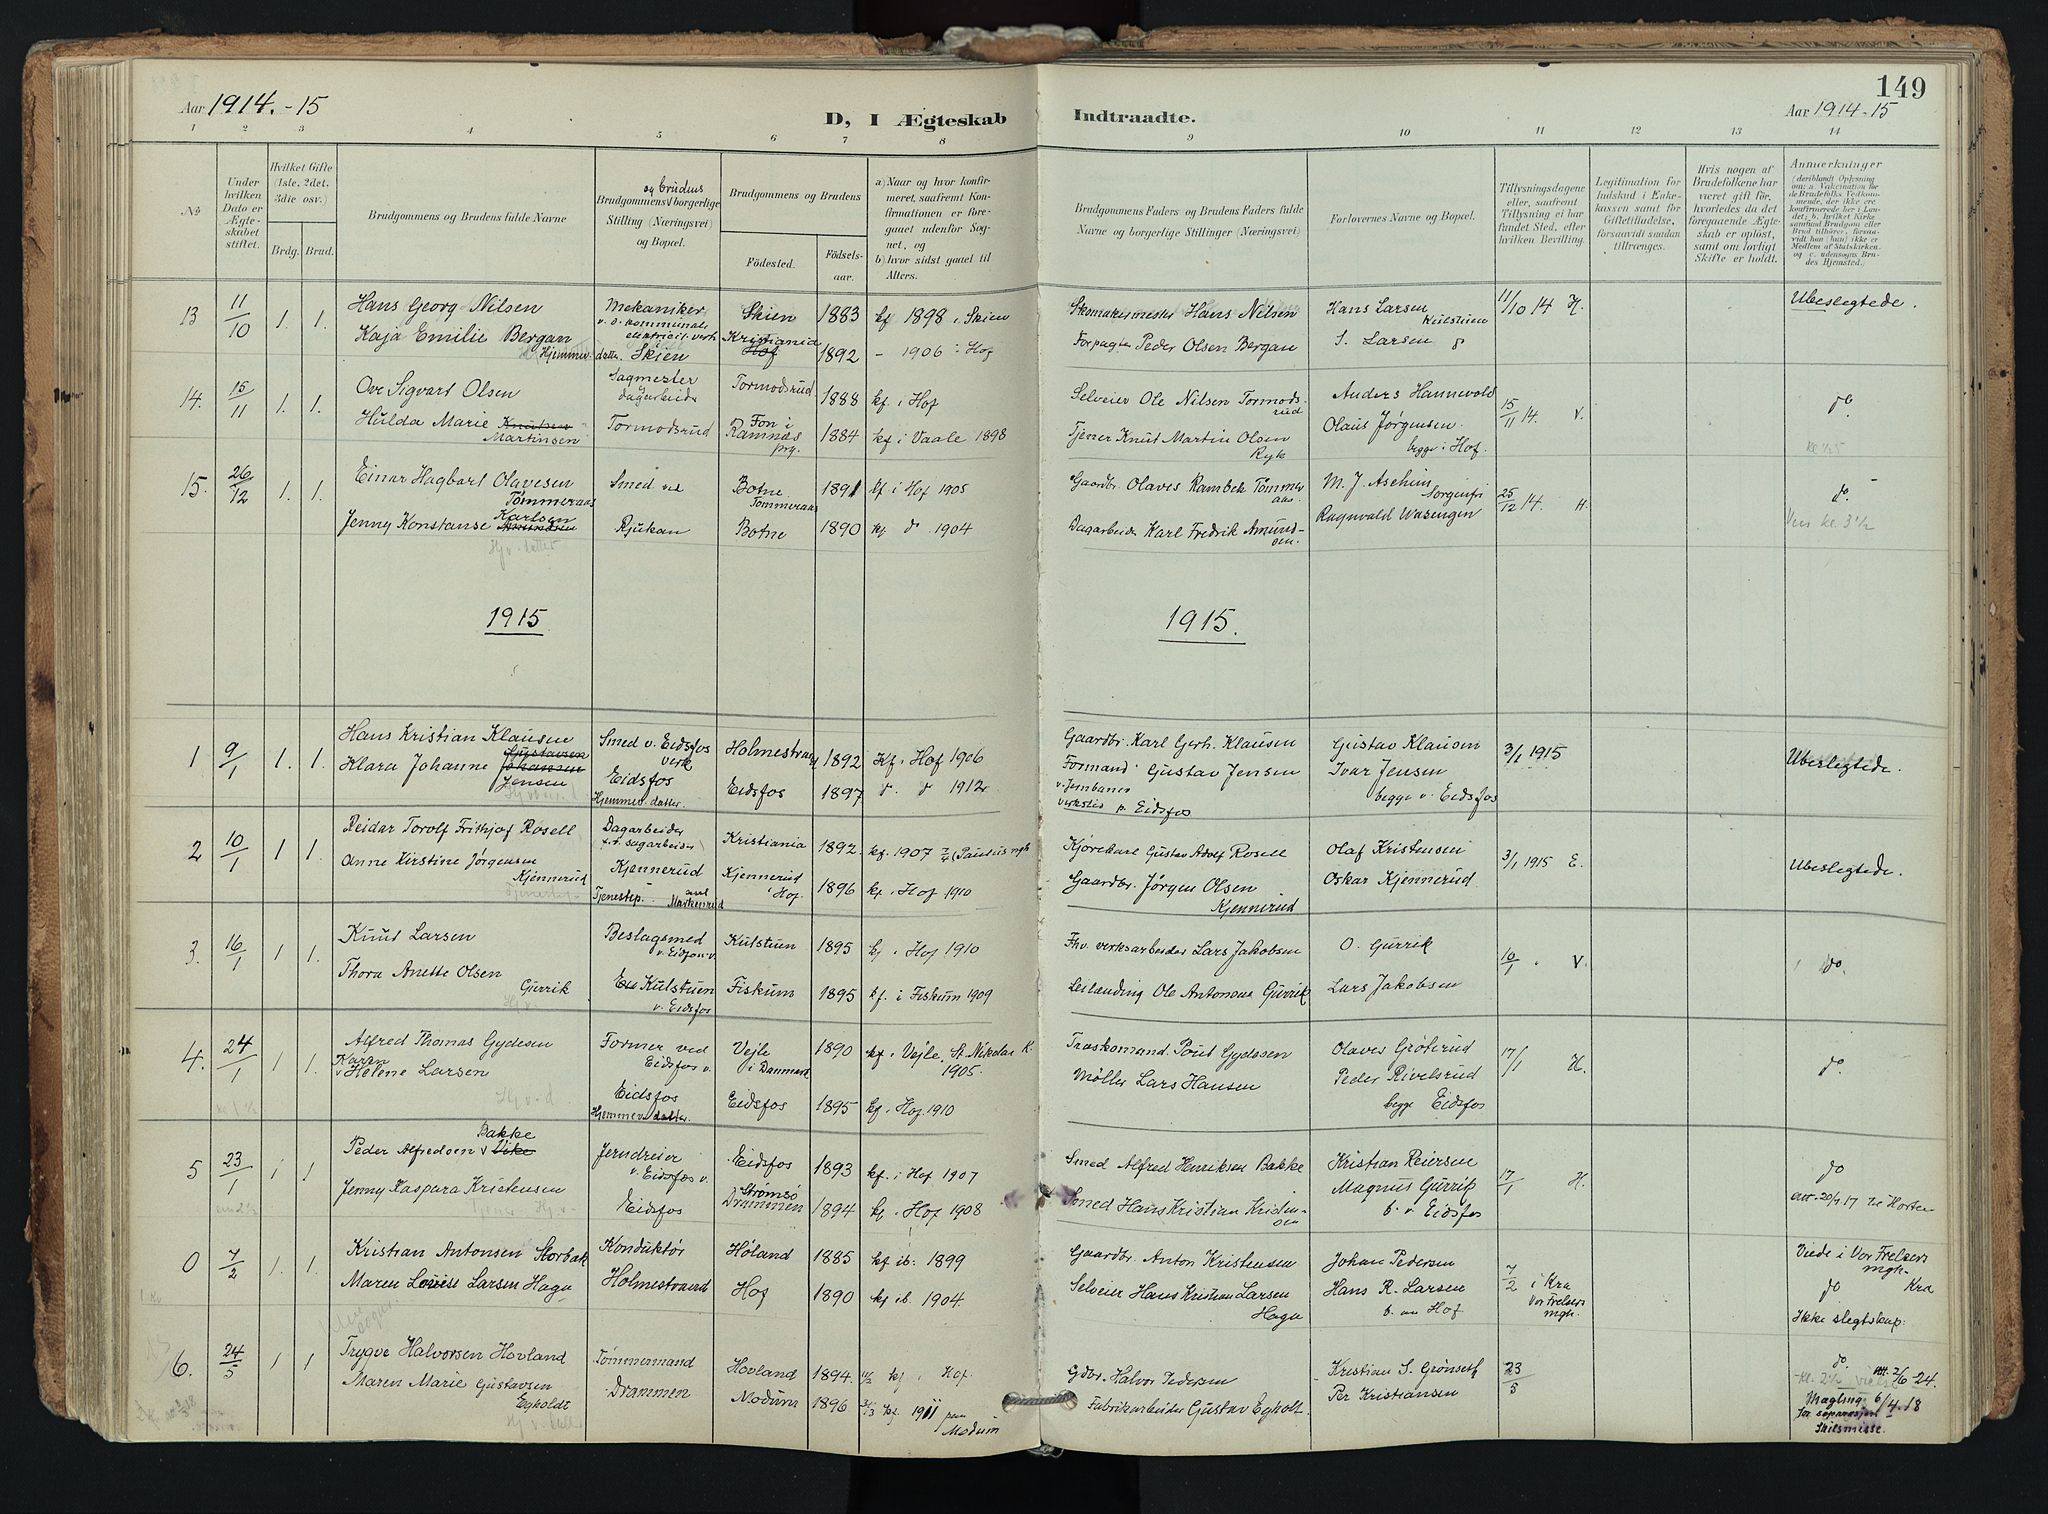 149
Aar 1914.-15
D, I Ægteskab Indtraadte.
Aar 1914-15
1 2 3 4 5 6 7 8 9 10 11 12 13 14
No
Under hvilken Dato er Ægteskabet stiftet.
Hvilket Gifte (1ste. 2det. 3die osv.)
Brdg. Brud.
Brudgommens og Brudens fulde Navne
og brudens
Brudgommens borgerlige Stilling (Næringsvei) og Bopæl.
Brudgommens og Brudens
Födested. Födsels-aar.
a) Naar og hvor konfirmeret, saafremt Konfirmationen er foregaaet udenfor Sognet, og
b) hvor sidst gaaet til Alters.
Brudgommens Faders og Brudens Faders fulde Navne og borgerlige Stillinger (Næringsvei)
Forlovernes Navne og Bopæl.
Tillysningsdagene eller, saafremt Tillysning ei har fundet Sted, efter hvilken Bevilling.
Legitimation for Indskud i Enkekassen samt for Giftetilladelse, forsaavidt saadan tiltrænges.
Hvis nogen af Brudefolkene har været gift før, hvorledes da det foregaaende Ægteskab er oplöst, samt om lovligt Skifte er holdt.
Anmærkninger
(deriblandt Oplysning om: a. Vakcination for de Brudefolks Vedkommende, der ikke ere konfirmerede her i Landet; b. hvilket Kirkesamfund Brudgom eller Brud tilhører, forsaavidt han (hun) ikke er Medlem af Statskirken, og c. udensogns Brudes Hjemsted.)
13 11/10 1. 1. Hans Georg Nilsen Mekaniker v. d. kommunale elektricit. verk Skien 1883 kf 1898 i Skien Skomakermester Hans Nilsen Hans Larsen 11/10 14 H. Ubeslegtede.
Kaja Emilie Bergan Hjemmev. datter. Skien Kristiania Hof 1892 - 1906 i Hof Forpagter Peder Olsen Bergan S. Larsen
14. 15/11 1. 1. Ove Sigvart Olsen Sagmester dagarbeider Tormodsrud 1888 kf. i Hof Selveier Ole Nilsen Tormodsrud Anders Hannevold 15/11 14. V. do
Hulda Marie Knutsen Martinsen Tormodsrud Fon i Ramnæs prg. 1884 kf i Vaale 1898 Tjener Knut Martin Olsen Olaus Jørgensen begge i Hof.
15. 26/12 1. 1. Einar Hagbart Olavesen Tømmeraas Smed ved Botne Tømmeraas 1891 kf i Hof 1905 Gaardbr. Olaves Rambek Tømmeraas M. J. Ascheim Sorgenfri 25/12 14. H. do.
Jenny Konstanse Karlsen Amundsen Rjukan Botne 1890 kf do 1904 Dagarbeider Karl Fredrik Amundsen. Ragnvald Wasengen
Hjv. datter
1915 1915.
1 9/1 1. 1. Hans Kristian Klausen Smed v. Eidsfos verk Holmestrand 1892 Kf. i Hof 1906 Gaardbr. Karl Gerh. Klausen Gustav Klausen 3/1 1915 Ubeslegtede.
Klara Johanne Gustavsen Johansen Jensen Eidsfos Hjemmev. datter. Eidsfos 1897 do. do 1912 Formand v. Jernbaneverksted p. Eidsfos Gustav Jensen Ivar Jensen begge v. Eidsfos
2 10/1 1 1. Reidar Torolf Frithjof Rosell Dagarbeider Kristiania 1892. kf. 1907 7/4 (Paulus mgh Kjørekarl Gustav Adolf Rosell Olaf Kristensen 3/1 1915 E. Ubeslegtede.
Anne Kirstine Jørgensen Kjennerud Kjennerud Tjenestep. Kjennerud i Hof. 1896 kf. i Hof 1910 Gaardbr. Jørgen Olsen Kjennerud Oskar Kjennerud
3. 16/1 1 1. Knut Larsen Beslagsmed v. Eidsfos v. Kulstuen 1895 kf. i Hof 1910 Fhv. verksarbeider Lars Jakobsen O. Gurrik V. do.
Thora Anette Olsen Gurrik Kulstuen v. Eidsfos Fiskum 1895 kf. i Fiskum 1909 Leilænding Ole Antonsen Gurrik Lars Jakobsen
4. 24/1 1 1. Alfred Thomas Gydesen Former ved Eidsfos v. Vejle i Danmark 1890 kf. i Vejle, St. Nikolai K. 1905. Poul Gydesen Olaves Grøterud 17/1 H. do.
Karen Helene Larsen Eidsfos Hjemmev. datter. Eidsfos 1895 kf. i Hof 1910 Møller Lars Hansen Peder Rivelsrud begge Eidsfos
5 23/1 1 1. Peder Alfredsen Bakke Vike Jerndreier v. Eidsfos v. Eidsfos 1893 kf. i Hof 1907 Smed Alfred Henriksen Bakke Kristian Reiersen 17/1 H. do
Jenny Kaspara Kristensen Eidsfos Strømsø Drammen 1894 kf. i Hof 1908 Smed Hans Kristian Kristensen Magnus Gurrik b. v. Eidsfos
0 7/2 1. 1. Kristian Antonsen Storbak Konduktør Høland 1885 kf. ib. 1899 Gaardbr. Anton Kristensen Johan Pedersen 7/2 i Kra Vor Frelsers mgh. Viede i Vor Frelsers mgh. Kra
Maren Lovise Larsen Haga Holmestrand Hof 1890 kf ib. 1904. Selveier Hans Kristian Larsen Haga Hans R. Larsen b. av Hof. do Ikke slegtskap.
6. 24/5 1 1 Trygve Halvorsen Hovland Tømmermand Hovland 1894. kf. i Hof. Gdbr. Halvor Pedersen Kristian S. Grønseth 23/5 do.
Maren Marie Gustavsen Egholdt Drammen Modum 1896 kf. 1911 paa Modum Fabrikarbeider Gustav Egholt. Per Kristiansen Mægling 6/4.18 for separasjon Skilsmisse.